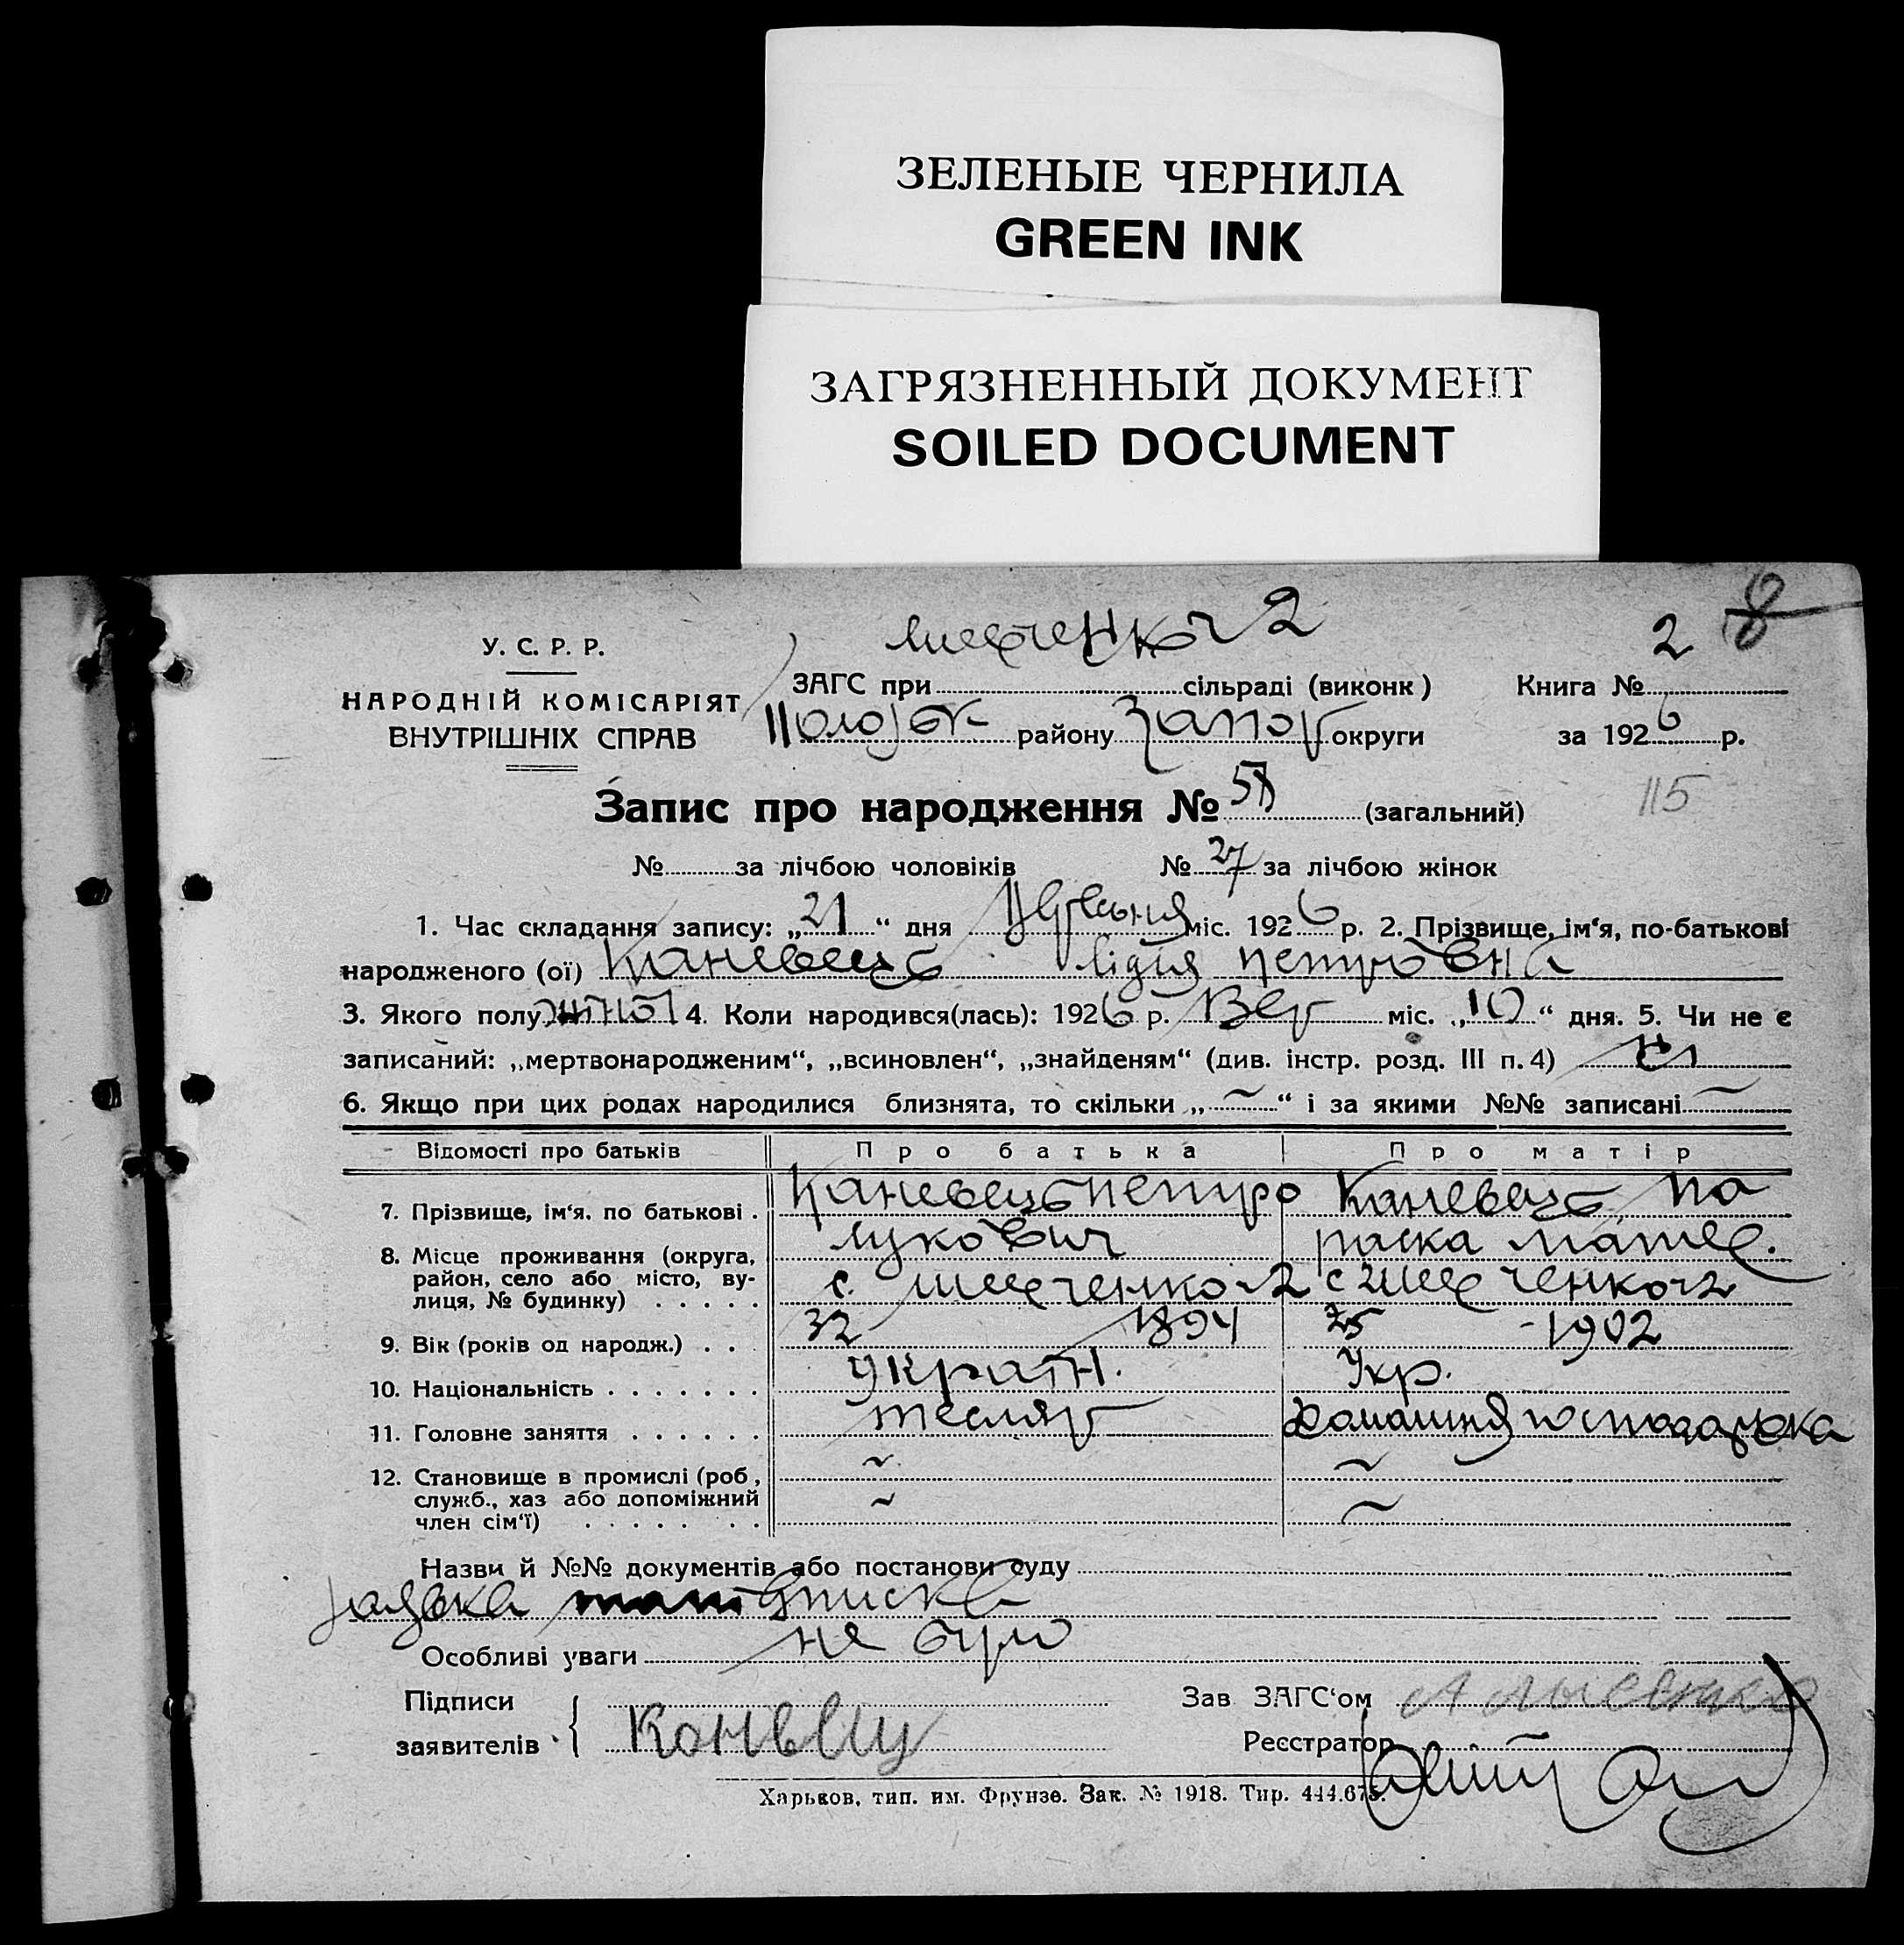 ЗЕЛЕНЫЕ ЧЕРНИЛА
GREEN INK
ЗАГРЯЗНЕННЫЙ ДОКУМЕНТ
SOILED DOCUMENT
8
У. С. Р. Р.
НАРОДНІЙ КОМІСАРІЯТ
ВНУТРІШНІХ СПРАВ
Шевченко 2
ЗАГС при сільраді (виконк) Книга № 2
Полог району Запор округи за 1926 р.
Запис про народження № 58 (загальний)
115
№ за лічбою чоловіків № 27 за лічбою жінок
1. Час складання запису: „21“ дня Вересьня міс. 1926 р. 2. Прізвище, ім‘я, по-батькові
народженого (ої) Каневець Лідія Петровна
3. Якого полу жіноі 4. Коли народився(лась): 1926 р. Вер міс. „10“ дня. 5. Чи не є
записаний: „мертвонародженим“, „всиновлен“, „знайденям“ (див. інстр. розд. III п. 4) ні
6. Якщо при цих родах народилися близнята, то скільки „~“ і за якими №№ записані ~
Відомості про батьків Про батька Про матір
7. Прізвище, ім‘я. по батькові . Каневець Петро Каневець Па
Лукович раска Матв.
8. Місце проживання (округа, район, село або місто, вулиця, № будинку) с. Шевченко 2 с Шевченко 2
9. Вік (років од народж.) 32 1894 25 - 1902
10. Національність Україн. Укр.
11. Головне заняття тесляр Домашня господарька
12. Становище в промислі (роб, ~ ~
служб., хаз або допоміжний ~ ~
член сім‘ї)
Назви й №№ документів або постанови суду
заявка
Особливі уваги не було
Підписи Зав ЗАГС‘ом
заявителів Каневец Реєстратор
Харьков, тип. им. Фрунзе. Зак. № 1918. Тир. 444.675.